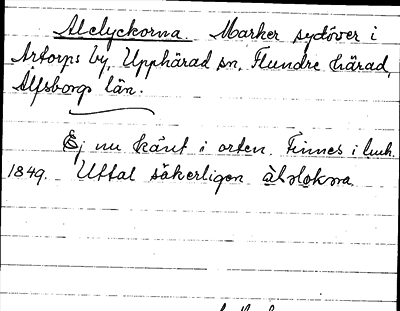 Alelyckorna. Marker sydöver i
Artorps by, Upphärad sn, Flundre härad,
Älfsborgs län.
Ej nu känt i orten. Finnes i
1849. Uttal säkerligen